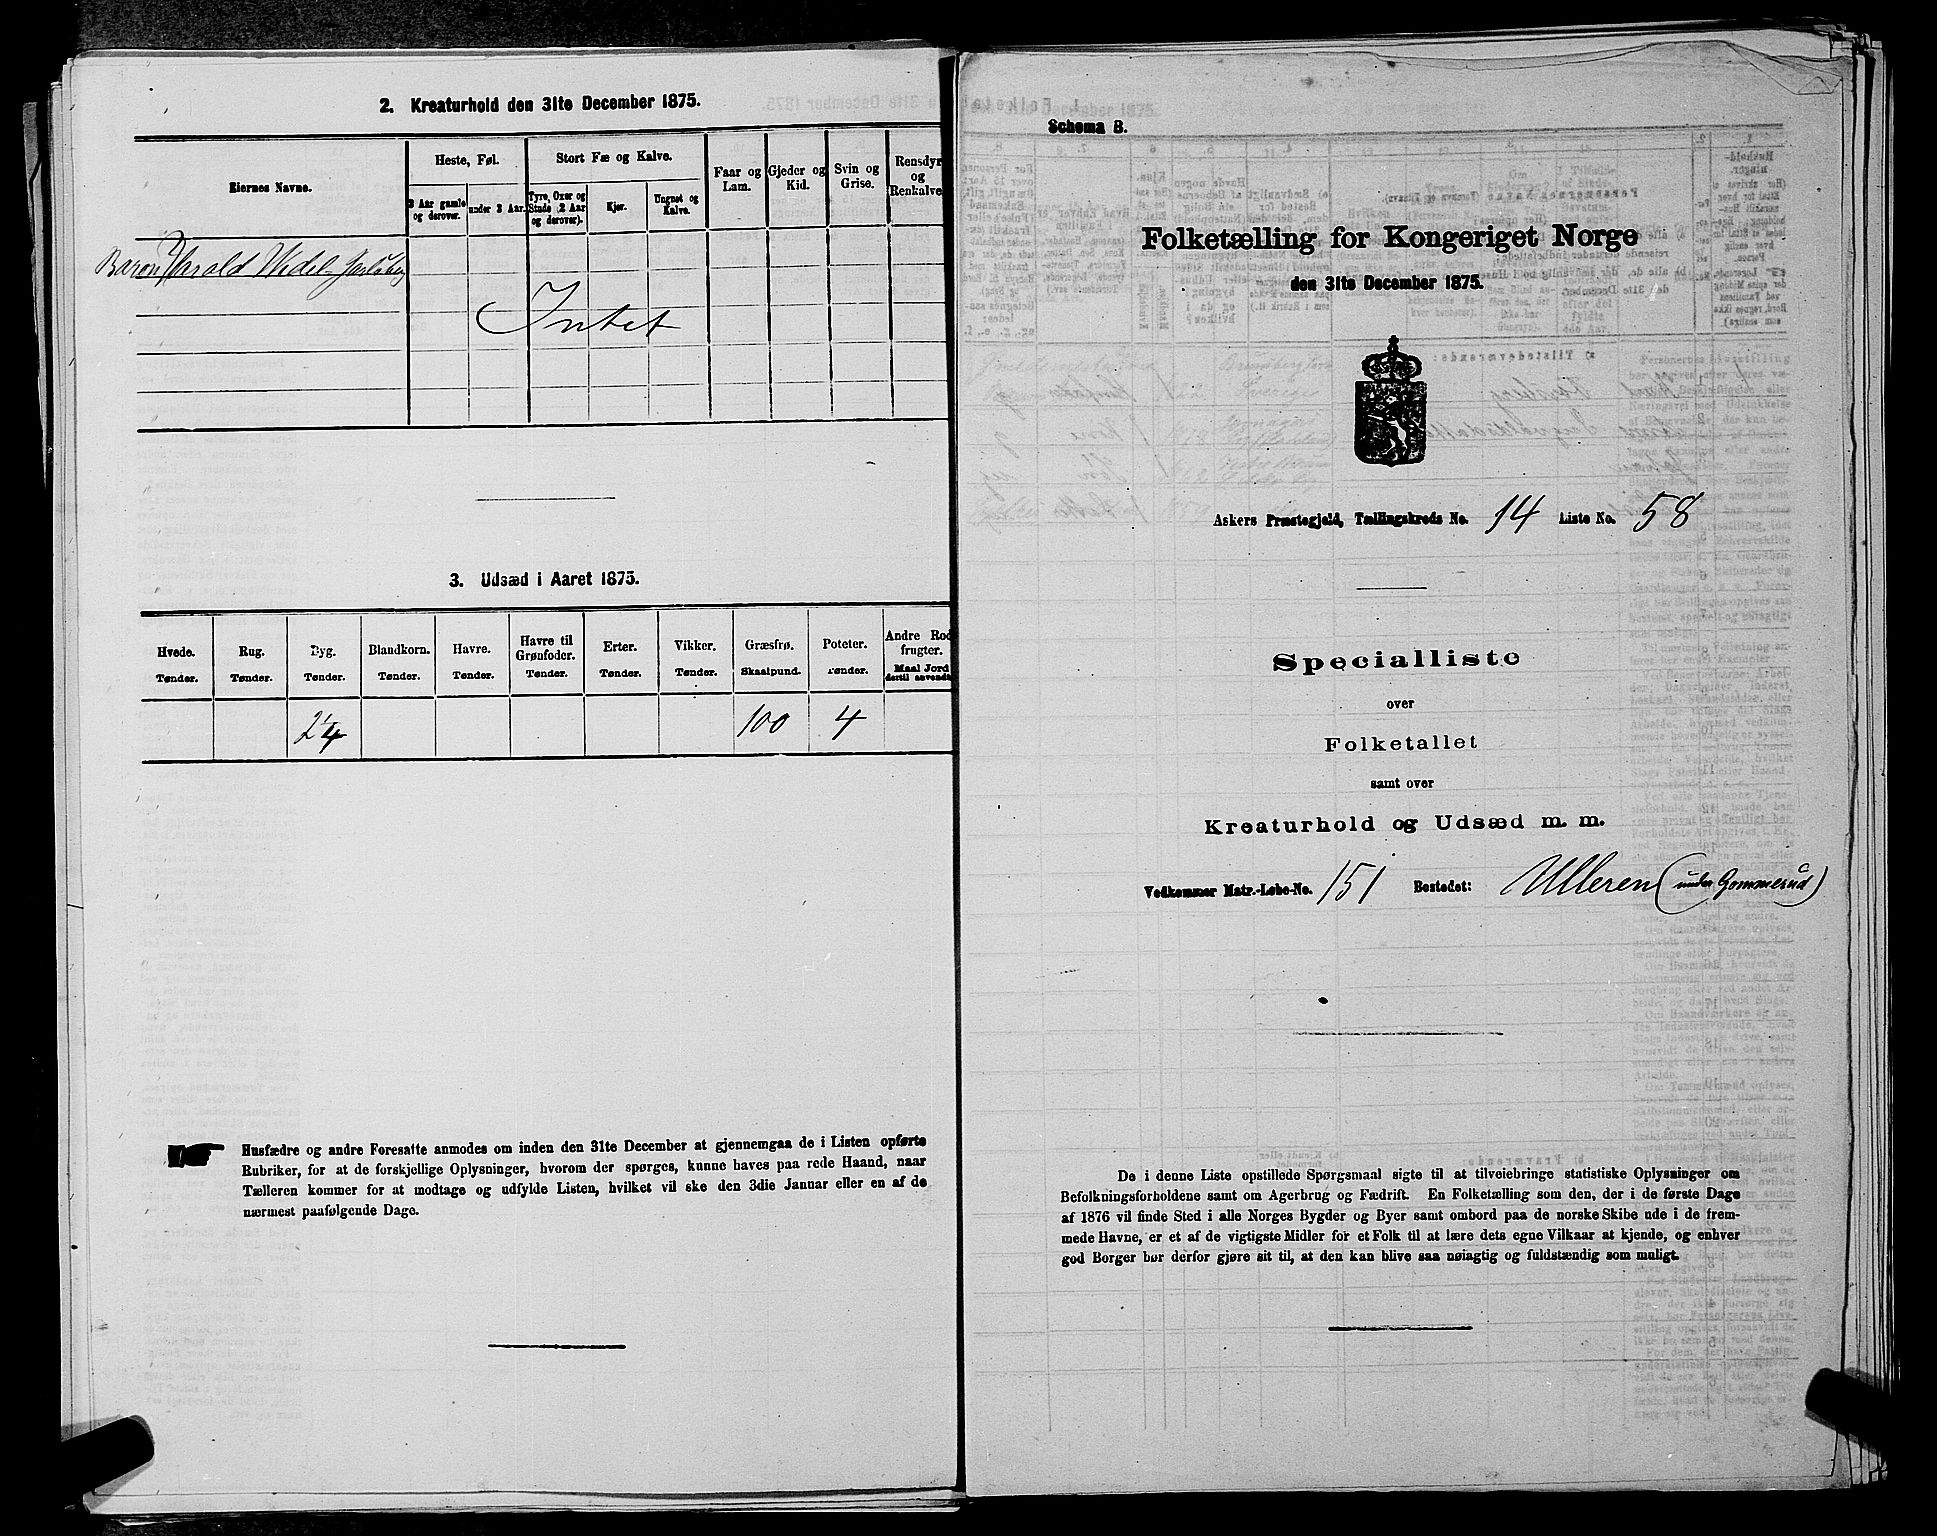 2. Kreaturhold den 31te December 1875.
Eiernes Navne.
Heste, Føl.
Stort Fæ og Kalve.
Faar og Lam.
Gjeder og Kid.
Svin og Grise.
Rensdyr og Renkalve.
3 Aar gamle og derover.
under 3 Aar.
Tyre, Oxer og Stude (2 Aar og derover).
Kjør.
Ungnøt og Kalve.
Baron Harald Wedel-Jarlsberg
Intet
3. Udsæd i Aaret 1875.
Hvede. Rug. Byg. Blandkorn. Havre. Havre til Grønfoder. Erter. Vikker. Græsfrø. Poteter. Andre Rodfrugter.
Tønder. Tønder. Tønder. Tønder. Tønder. Tønder. Tønder. Tønder. Skaalpund. Tønder. Maal Jord dertil anvendt.
100 4
Husfædre og andre Foresatte anmodes om inden den 31te December at gjennemgaa de i Listen opførte
Rubriker, for at de forskjellige Oplysninger, hvorom der spørges, kunne haves paa rede Haand, naar
Tælleren kommer for at modtage og udfylde Listen, hvilket vil ske den 3die Januar eller en af de
nærmest paafølgende Dage.
Schema B.
Folketælling for Kongeriget Norge
den 31te December 1875.
Askers Præstegjeld, Tællingskreds No. 14 Liste No. 58
Specialliste
over
Folketallet
samt over
Kreaturhold og Udsæd m. m.
Vedkommer Matr.-Løbe-No. 151 Bostedet: Ulleren (under Gommerud)
De i denne Liste opstillede Spørgsmaal sigte til at tilveiebringe statistiske Oplysninger om
Befolkningsforholdene samt om Agerbrug og Fædrift. En Folketælling som den, der i de første Dage
af 1876 vil finde Sted i alle Norges Bygder og Byer samt ombord paa de norske Skibe ude i de frem-
mede Havne, er et af de vigtigste Midler for et Folk til at lære dets egne Vilkaar at kjende, og enhver
god Borger bør derfor gjøre sit til, at den kan blive saa nøiagtig og fuldstændig som muligt.